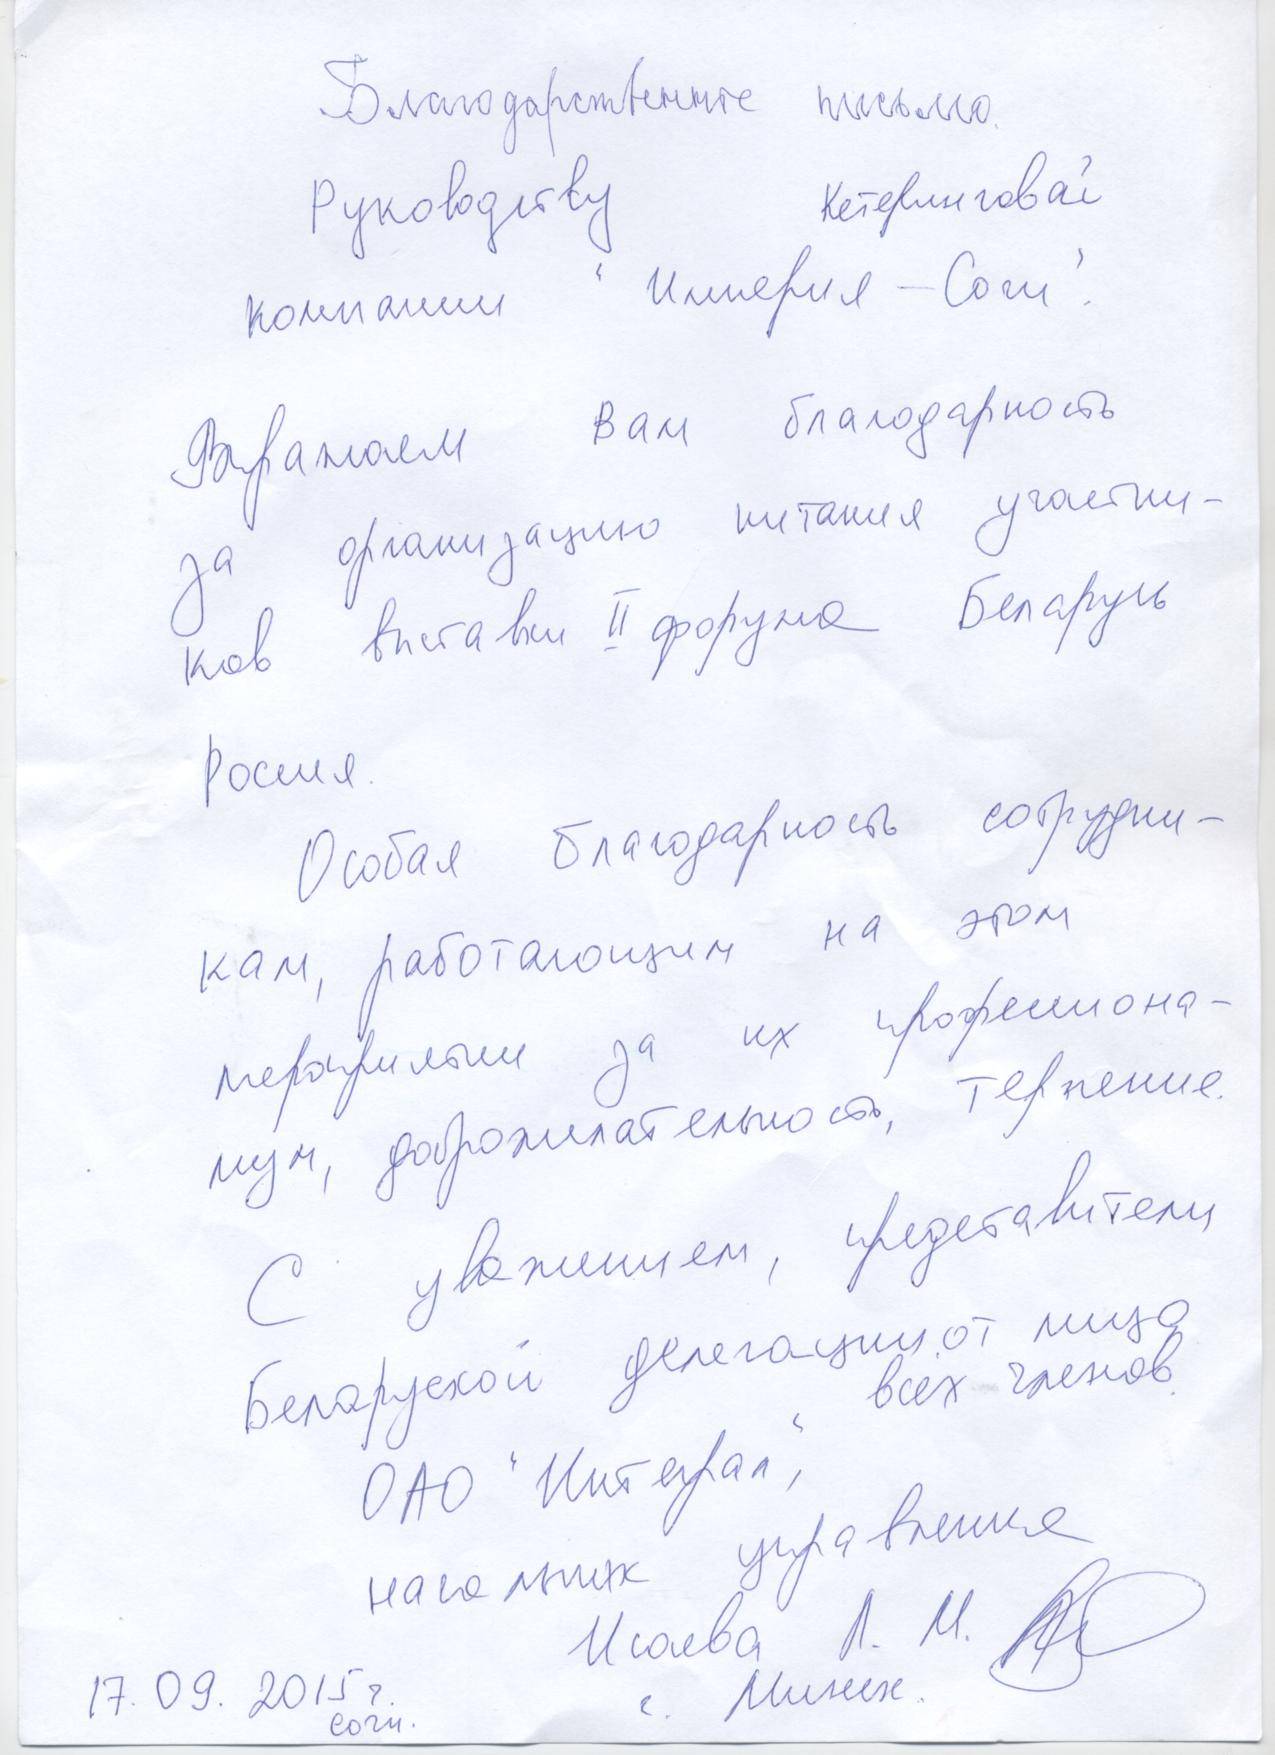 Благодарственные письмо.
Руководству Кетеринговой
компании "Империя-Сочи".
Выражаем Вам благодарность
за организацию питания участни-
ков выставки II форума Беларусь
Россия.
Особая благодарность сотрудни-
кам, работающим на этом
мероприятии за их профессиона-
лизм, доброжелательность, терпение.
С уважением, представители
Беларуской делегации, от лица
всех членов.
ОАО "Интеграл",
начальник управления
Исаева Л. М.
г. Минск.
17.09.2015г.
Сочи.